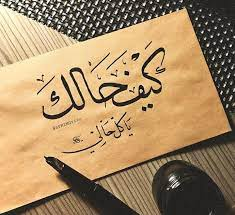 كَيفَ حَالك
يَا كُلّ حَالي